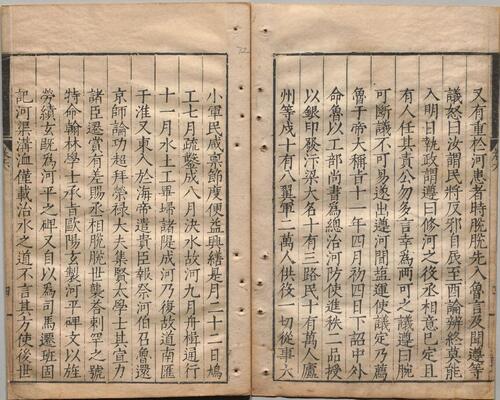 又有重於河患者時脫脫先入魯言及聞遵等
議怒曰汝謂民將反邪自辰至酉論辨終莫能
入明日執政謂遵曰修河之役丞相意已定且
有人任其責公勿多言幸為兩可之議遵曰腕
可斷議不可易遂出遵河間鹽運使議定乃薦
魯于帝大稱旨十一年四月初四日下詔中外
命魯以工部尚書為總治河防使進秩二品授
以銀印發汴梁大名十有三路民十有萬人廬
州等戍十有八翼軍二萬人供役一切從事大
小軍民咸稟節度便益興繕是月二十二日鳩
工七月疏鑿成八月決水故河九月舟楫通行
十一月水土工畢埽諸隄成河乃復故道南匯
于淮又東入於海帝遣貴臣報祭河伯召魯還
京師論功超拜榮祿大夫集賢大學士其宣力
諸臣遷賞有差賜丞相脫脫世襲答剌罕之號
特命翰林學士承旨歐陽玄製河平碑文以旌
勞績玄既為河平之碑又自以為司馬遷班固
記河渠溝洫僅載治水之道不言其方使後世